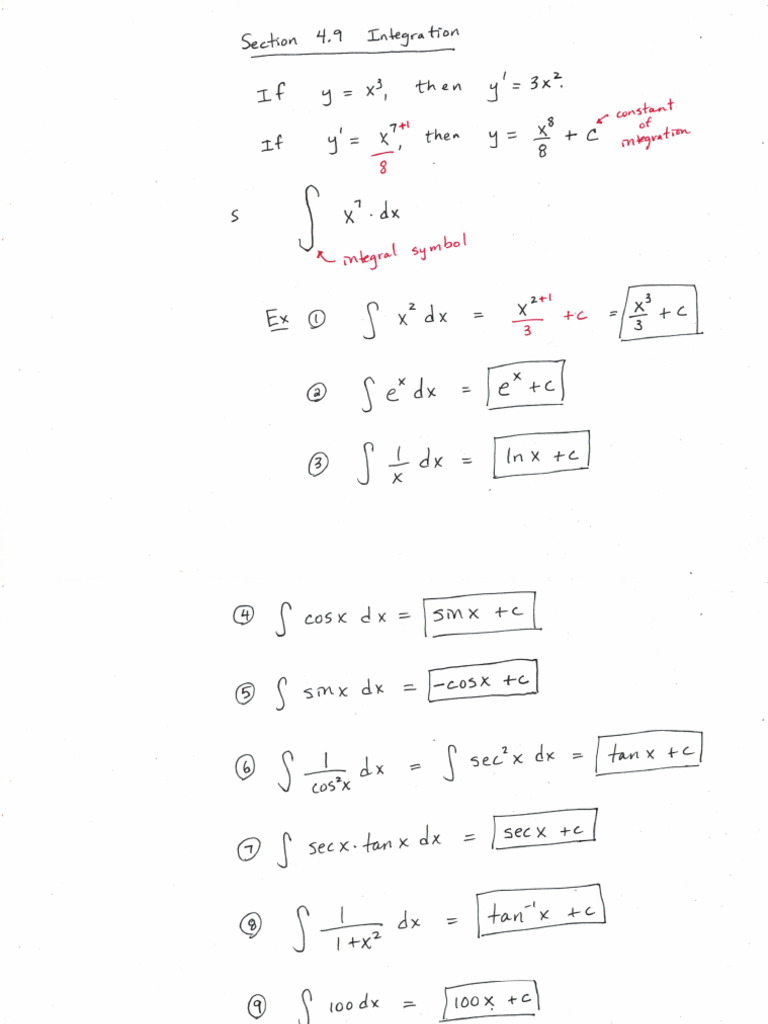 Section 4.9 Integration
If y = x³, then y' = 3x².
If y' = x⁷⁺¹/8, then y = x⁸/8 + c ← constant of integration
s ∫ x⁷ · dx
↖ integral symbol
Ex ① ∫ x² dx = x²⁺¹/3 + c = x³/3 + c
② ∫ eˣ dx = eˣ + c
③ ∫ 1/x dx = ln x + c
④ ∫ cos x dx = sin x + c
⑤ ∫ sin x dx = -cos x + c
⑥ ∫ 1/cos²x dx = ∫ sec²x dx = tan x + c
⑦ ∫ sec x · tan x dx = sec x + c
⑧ ∫ 1/1+x² dx = tan⁻¹x + c
⑨ ∫ 100 dx = 100x + c